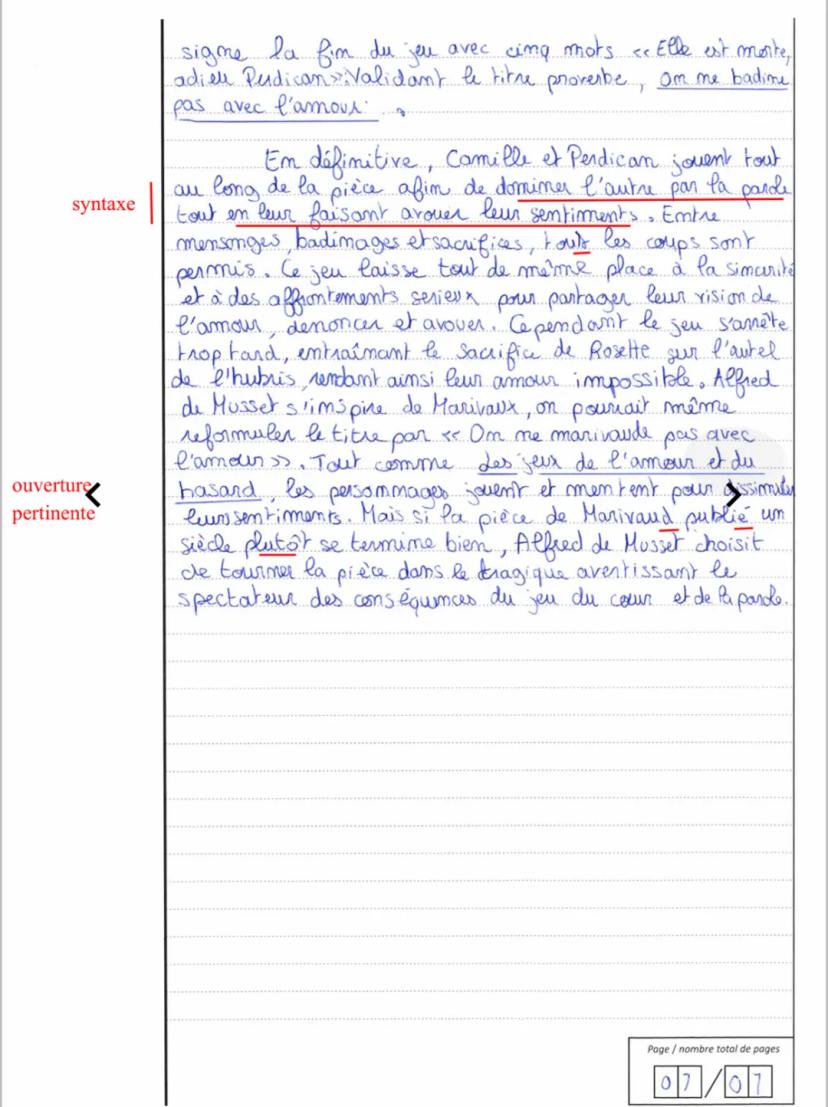 signe la fin du jeu avec cinq mots « Elle est morte,
adieu Perdican ». Validant le titre proverbe, On ne badine
pas avec l'amour.
En définitive, Camille et Perdican jouent tout
syntaxe
au long de la pièce afin de dominer l'autre par la parole
tout en leur faisant avouer leur sentiments. Entre
mensonges, badinages et sacrifices, touts les coups sont
permis. Ce jeu laisse tout de même place à la sincérité
et à des affrontements serieux pour partager leur vision de
l'amour, dénoncer et avouer. Cependant le jeu s'arrête
trop tard, entraînant le sacrifice de Rosette sur l'autel
de l'hubris, rendant ainsi leur amour impossible. Alfred
de Musset s'inspire de Marivaux, on pourrait même
reformuler le titre par « On ne marivaude pas avec
l'amour ». Tout comme des jeux de l'amour et du
ouverture
pertinente
hasard, les personnages jouent et mentent pour dissimuler
leurs sentiments. Mais si la pièce de Marivaud publié un
siècle plutôt se termine bien, Alfred de Musset choisit
de tourner la pièce dans le tragique avertissant le
spectateur des conséquences du jeu du cœur et de la parole.
Page / nombre total de pages
07/07